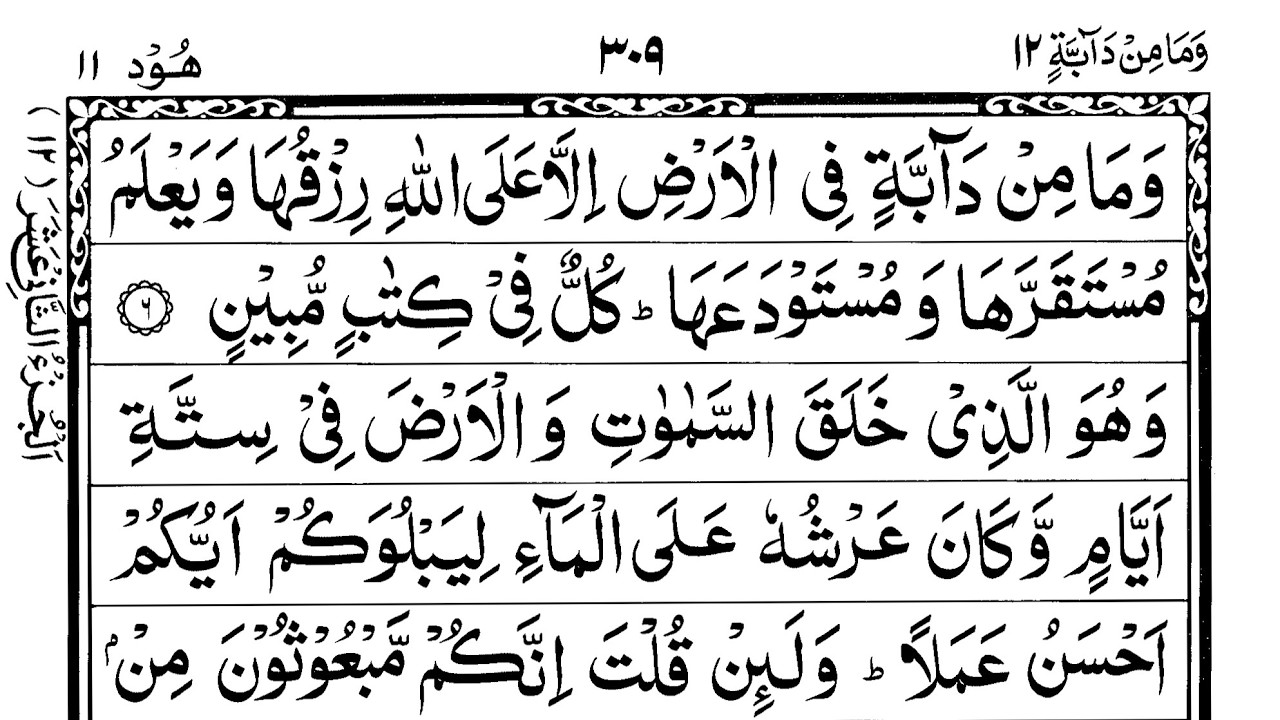 وَمَا مِنْ دَآبَّةٍ ١٢
٣٠٩
هُوْد ١١
وَمَا مِنْ دَآبَّةٍ فِي الْاَرْضِ اِلَّا عَلَى اللّٰهِ رِزْقُهَا وَيَعْلَمُ
مُسْتَقَرَّهَا وَ مُسْتَوْدَعَهَا ؕ كُلٌّ فِيْ كِتٰبٍ مُّبِيْنٍ ۶
وَهُوَ الَّذِيْ خَلَقَ السَّمٰوٰتِ وَ الْاَرْضَ فِيْ سِتَّةِ
اَيَّامٍ وَّكَانَ عَرْشُهٗ عَلَى الْمَآءِ لِيَبْلُوَكُمْ اَيُّكُمْ
اَحْسَنُ عَمَلًا ؕ وَلَىِٕنْ قُلْتَ اِنَّكُمْ مَّبْعُوْثُوْنَ مِنْۢ
اَلْجُزْءُ الثَّانِيْ عَشَرَ (١٢)